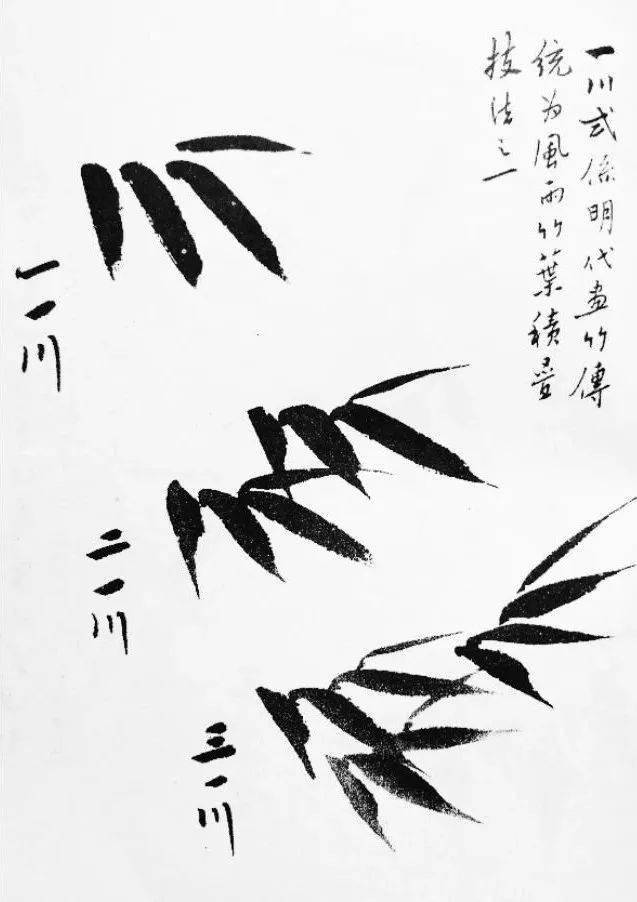 一川式係明代畫竹傳
统为風雨竹葉積叠
技法之一
一一川
二一川
三一川